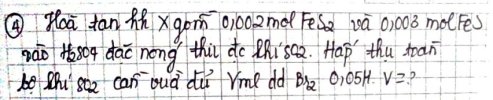 ④ Hoà tan hh X gồm 0,002 mol FeS2 và 0,003 mol FeS
vào H2SO4 đặc nóng thu đc khí SO2. Hấp thụ toàn
bộ khí SO2 cần vừa đủ V ml dd Br2 0,05M. V=?